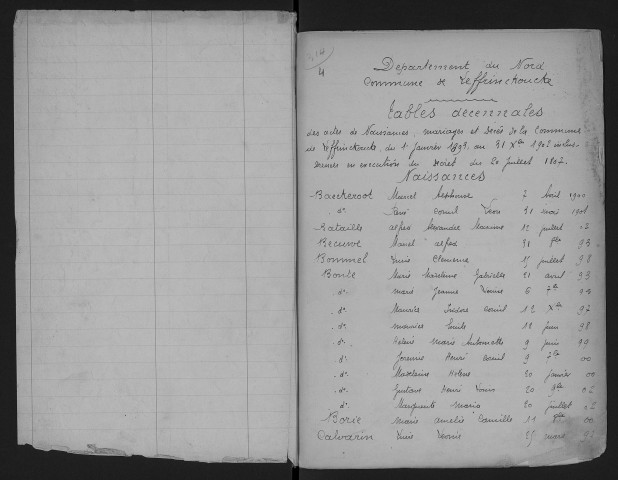 4
Département du Nord
Commune de Leffrinckoucke
Tables décennales
des actes de Naissances, mariages et Décès de la Commune
de Leffrinckoucke, du 1 Janvier 1893, au 31 Xbre 1902 inclus
Dressées en exécution du Décret du 20 Juillet 1807.
Naissances
Baeckeroot Marcel Alphonse 7 Avril 1900
d° Cornil Léon 31 mars 1901
Bataille Alfred Alexandre Maxime 12 juillet 02
Becuwe Marcel Alfred 31 93
Bommel Clémence 15 juillet 98
Bonte Marie Madeleine Gabrielle 21 avril 93
d° Marie Jeanne 6 7bre
d° Maurice Isidore Cornil 12 Xbre 97
d° Maurice Emile 12 juin 98
d° Hélène Marie Antoinette 9 juin 99
d° Jérémie Henri Cornil 9 7bre 00
d° Madeleine Hélène 20 janvier 00
d° Gustave Henri Louis 20 9bre 02
d° Marguerite Marie 20 juillet 02
Borie Marie Amélie Camille 11 00
Calvarin Louis 25 mars